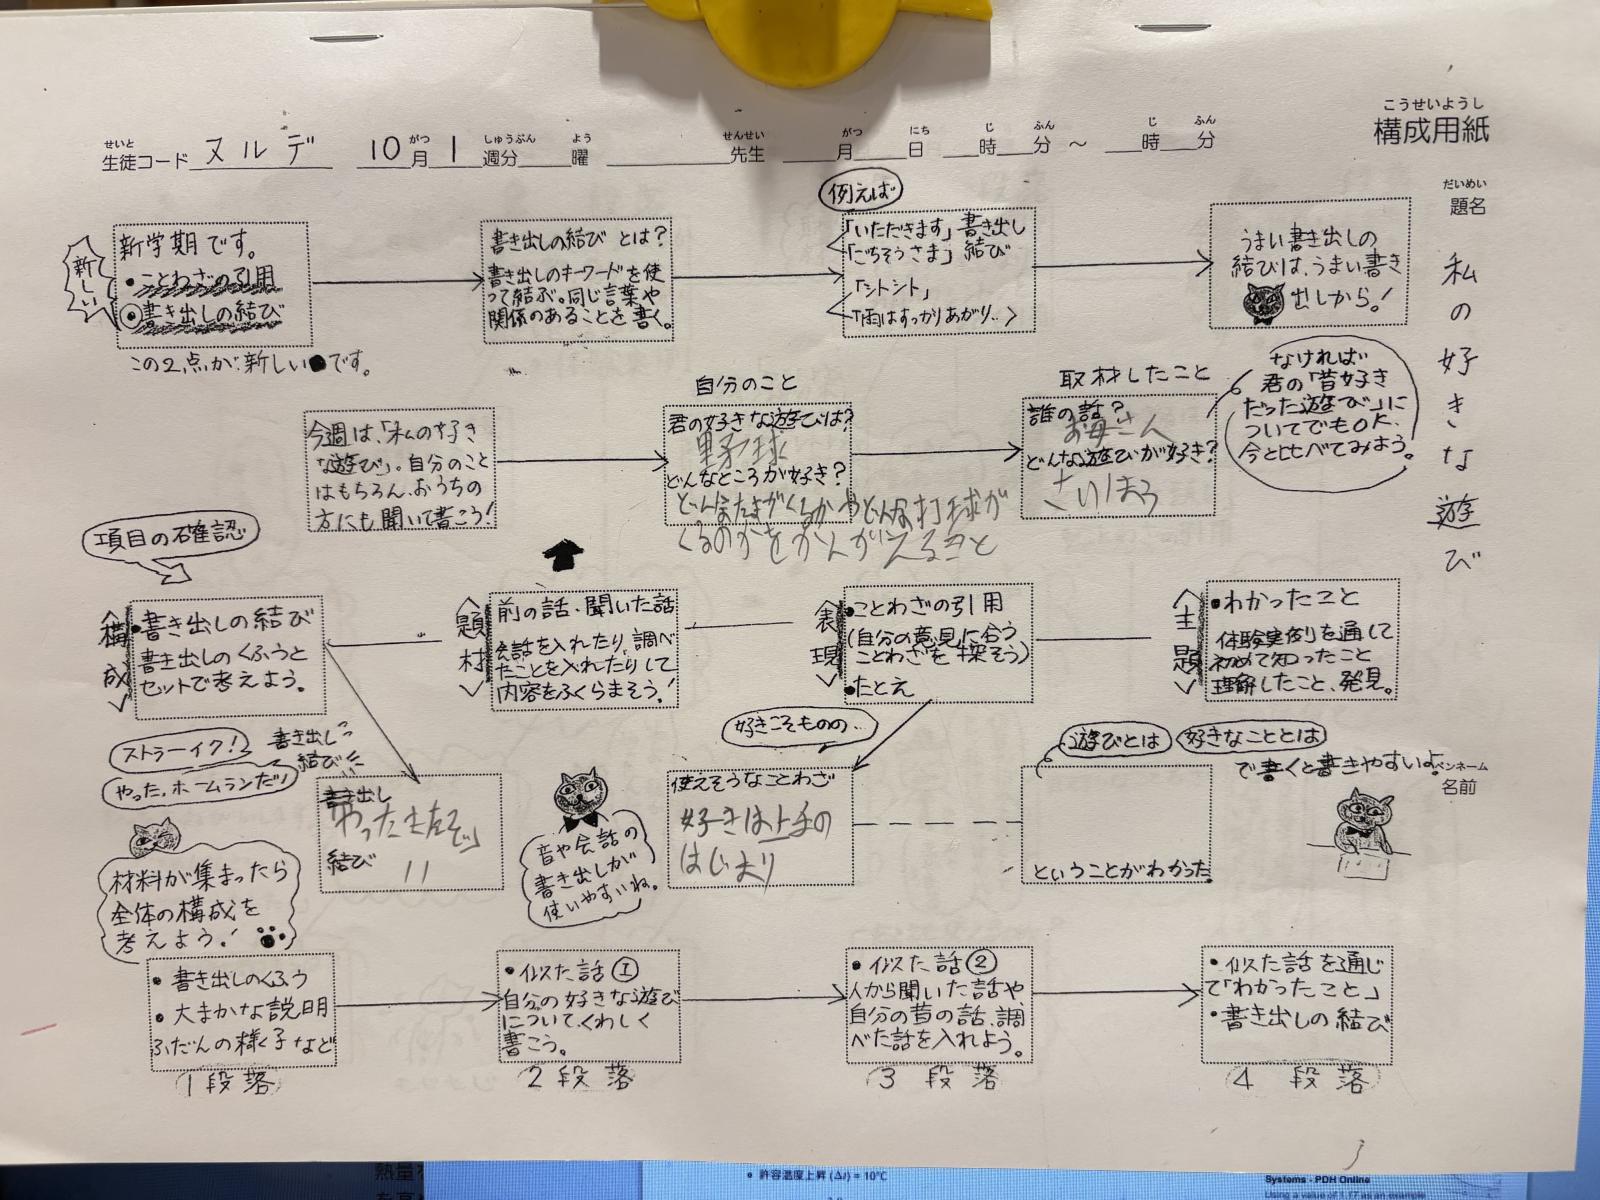 こうせいようし
構成用紙
せいと がつ しゅうぶん よう せんせい がつ にち じ ふん じ ふん
生徒コード ヌルデ 10月1週分 曜 先生 月 日 時 分 ～ 時 分
だいめい
題名
私の好きな遊び
新しい
新学期です。
・ことわざの引用
・書き出しの結び
この2点が新しいです。
書き出しの結び とは?
書き出しのキーワードを使
って結ぶ。同じ言葉や
関係のあることを書く。
例えば
「いただきます」書き出し
「ごちそうさま」結び
「シトシト」
「雨はすっかりあがり..
うまい書き出しの
結びは、うまい書き
出しから!
今週は、「私の好き
な遊び」。自分のこと
はもちろん、おうちの
方にも聞いて書こう!
自分のこと
君の好きな遊びは?
野球
どんなところが好き?
どんなたまがくるかやどんな打球が
くるのかをかんがえること
取材したこと
誰の話?
お母さん
どんな遊びが好き?
さいほう
なければ
君の「昔好き
だった遊び」に
ついてでもOK、
今と比べてみよう。
項目の確認
構成
・書き出しの結び
書き出しのくふうと
セットで考えよう。
題材
前の話・聞いた話
会話を入れたり、調べ
たことを入れたりして
内容をふくらまそう!
表現
・ことわざの引用
(自分の意見に合う
ことわざを探そう)
・たとえ
主題
・わかったこと
体験実例を通して
初めて知ったこと
理解したこと、発見。
ストラーイク!
やった、ホームランだ!
書き出し
結び
書き出し
結び
〃
音や会話の
書き出しが
使いやすいね。
好きこそものの..
使えそうなことわざ
好きは上手の
はじまり
遊びとは
好きなこととは
で書くと書きやすいよ。
ということがわかった。
ペンネーム
名前
材料が集まったら
全体の構成を
考えよう!
・書き出しのくふう
・大まかな説明
ふだんの様子など
1段落
・似た話①
自分の好きな遊び
について、くわしく
書こう。
2段落
・似た話②
人から聞いた話や、
自分の昔の話、調
べた話を入れよう。
3段落
・似た話を通じ
て「わかったこと」
・書き出しの結び
4段落
• 許容温度上昇 (Δt) = 10℃
Systems - PDH Online
Using a value of 1.17 as an example